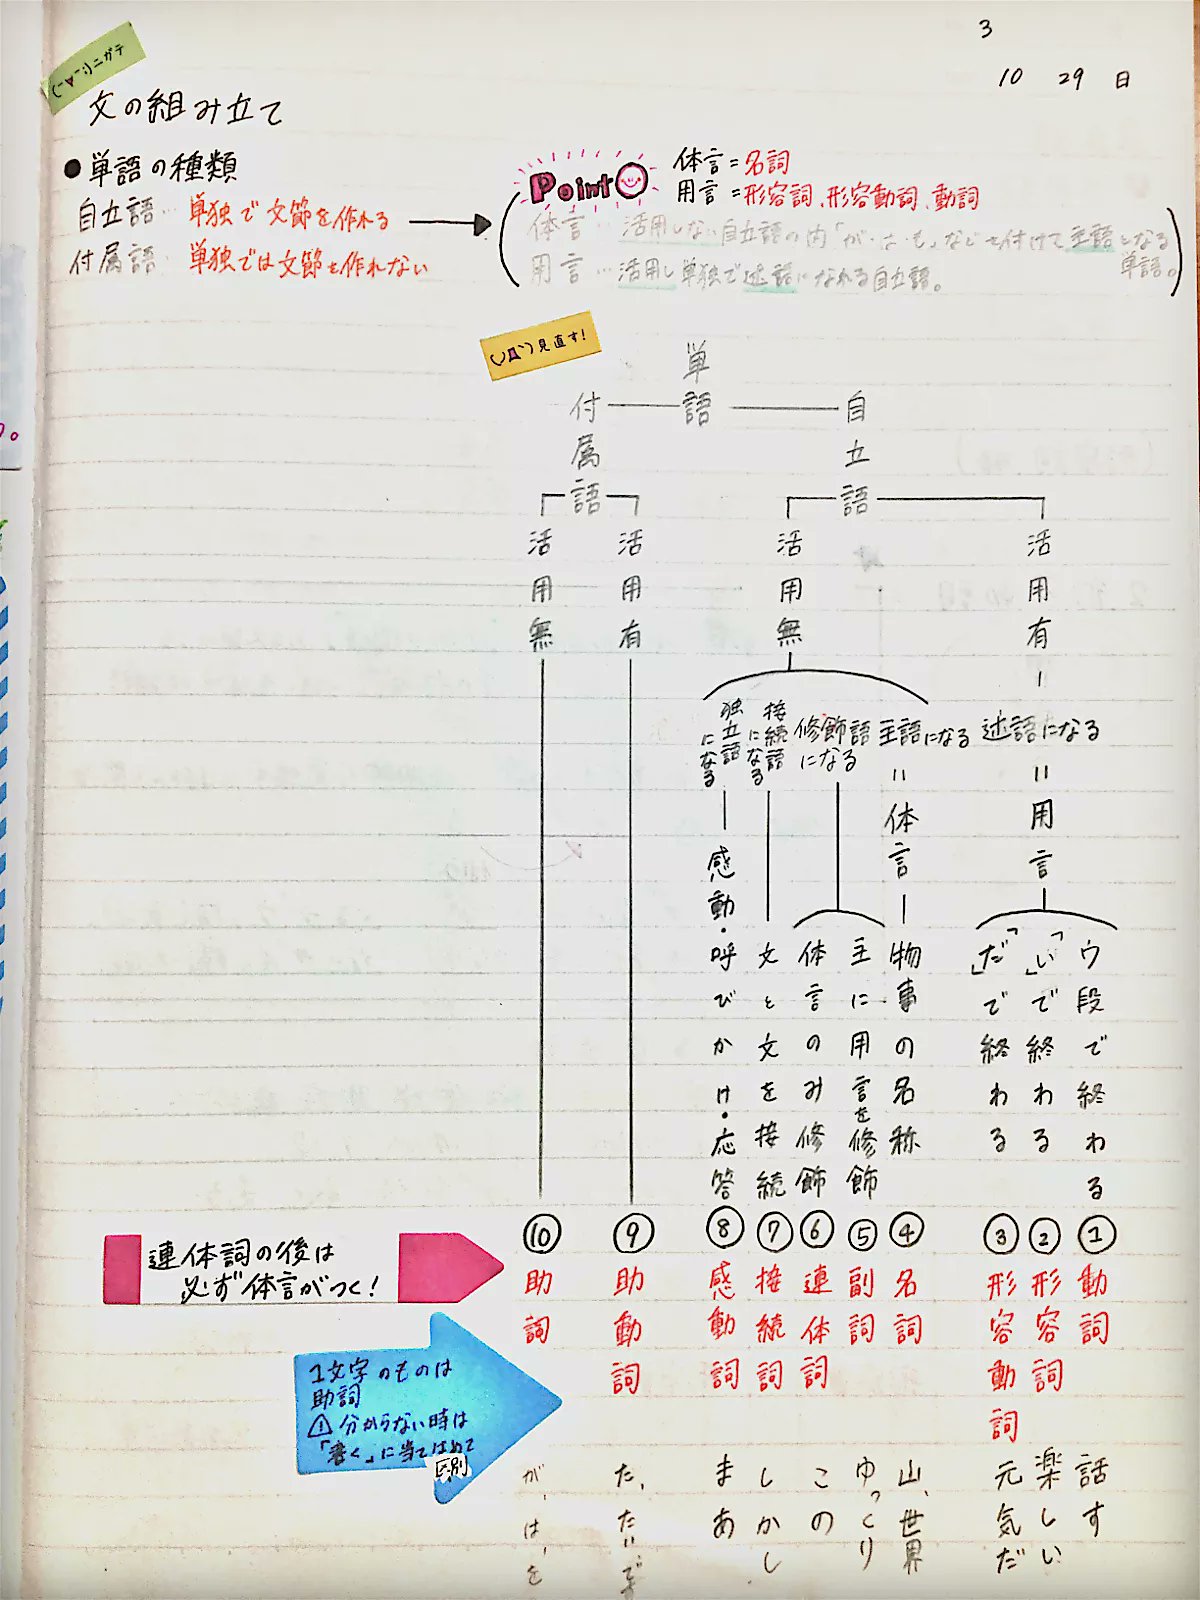 3
10 29 日
ニガテ
文の組み立て
●単語の種類
自立語… 単独で文節を作れる
付属語… 単独では文節を作れない
Point
体言=名詞
用言=形容詞、形容動詞、動詞
体言…活用しない自立語の内「が・は・も」などを付けて主語となる
単語。
用言…活用し単独で述語になれる自立語。
見直す!
単語
自立語
付属語
活用有
活用無
活用有
活用無
述語になる
主語になる
修飾語
になる
接続語
になる
独立語
になる
=用言
=体言
ウ段で終わる
「い」で終わる
「だ」で終わる
物事の名称
主に用言を修飾
体言のみ修飾
文と文を接続
感動・呼びかけ・応答
①動詞
話す
②形容詞
楽しい
③形容動詞
元気だ
④名詞
山、世界
⑤副詞
ゆっくり
⑥連体詞
この
⑦接続詞
しかし
⑧感動詞
まあ
⑨助動詞
た、たい、です
⑩助詞
が、は、を
連体詞の後は
必ず体言がつく!
1文字のものは
助詞
⚠分からない時は
「書く」に当てはめて
区別